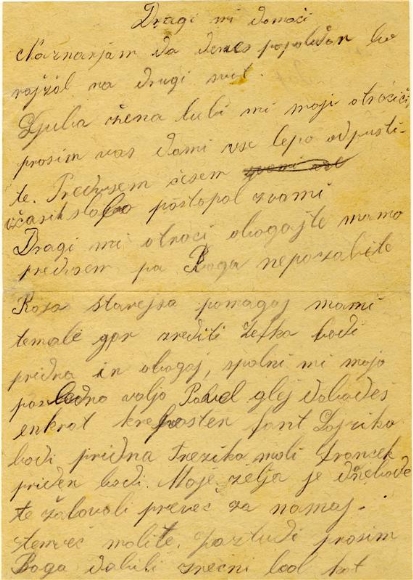 Dragi mi domači
Naznanjam da denes popoldan bo
rajžal na drugi svet.
Ljuba žena lubi mi moji otročiči
prosim vas dami vse lepo odpusti-
te. Predvsem sesem
včasih slabo postopal zvami
Dragi mi otroci obogajte mamo
predvsem pa Boga nepozabite
Roza starejša pomagaj mami
temale gor srediti Zefka bodi
pridna in obogaj, spolni mi mojo
poslednо voljo Pavel glej dabodeš
enkrat kreposten fant Lojzika
bodi pridna Trezika moli Francek
priden bodi. Moja želja je dnebode
te žalovali preveč za namaj.
temveč molite. jaz tudi prosim
Boga dabili srečni bol kot